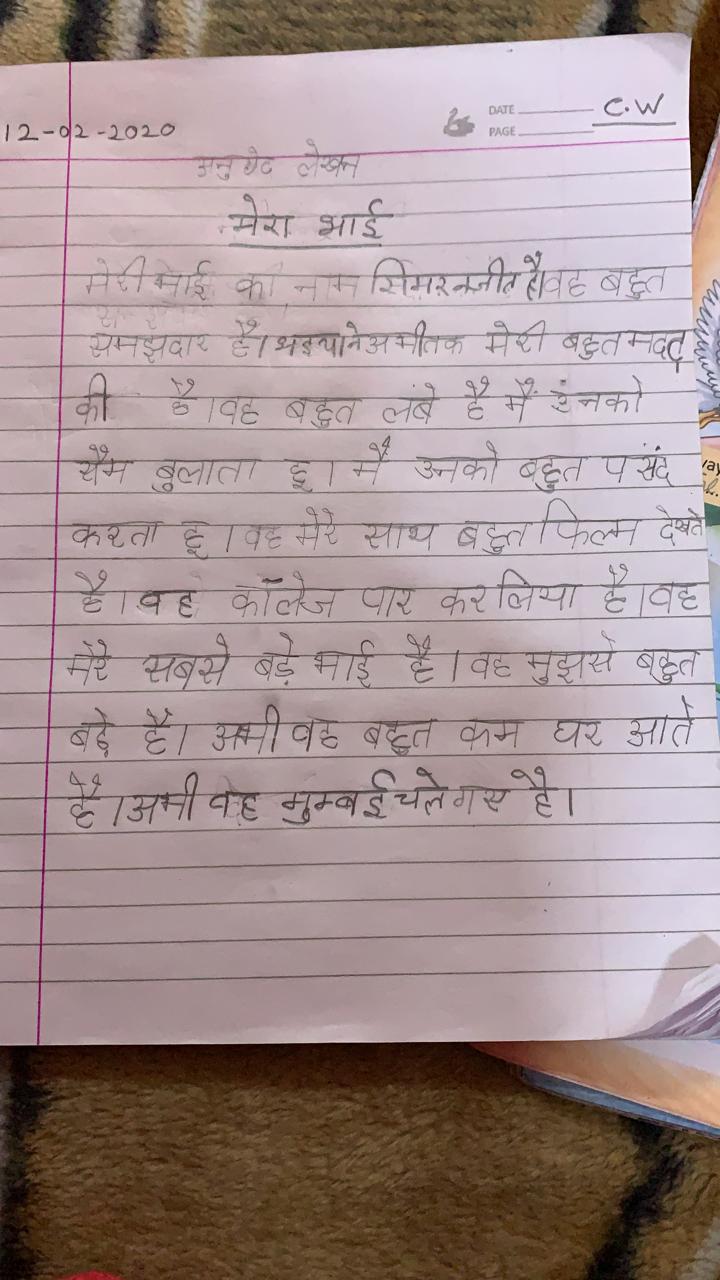 C.W
DATE
12-02-2020
PAGE
अनुछेद लेखन
मेरा भाई
मेरी भाई का नाम सिमरनजीत है। वह बहुत
समझदार है। भइया ने अभी तक मेरी बहुत मदद
की है। वह बहुत लंबे है मैं इंनको
सैम बुलाता हू। मैं उनको बहुत पसंद
करता हू। वह मेरे साथ बहुत फिल्म देखते
हैं। वह कॉलेज पार कर लिया है। वह
मेरे सबसे बड़े भाई हैं। वह मुझसे बहुत
बड़े हैं। अभी वह बहुत कम घर आते
हैं। अभी वह मुम्बई चले गए हैं।